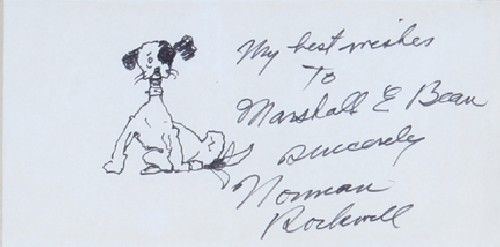 My best wishes
To
Marshall E Bean
Sincerely
Norman
Rockwell